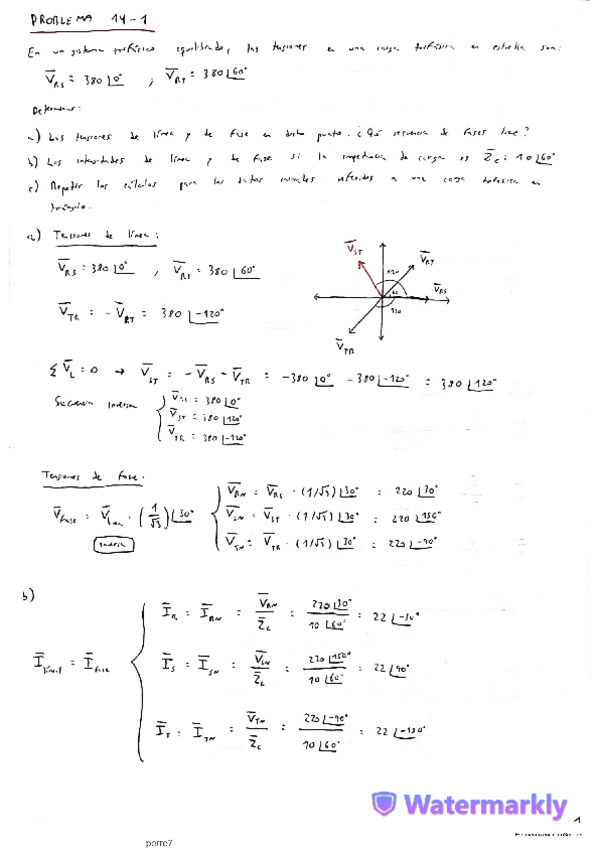 PROBLEMA 14-1
En un sistema trifásico equilibrado, las tensiones en una carga trifásica en estrella son:
V̅RS = 380∠0° , V̅RT = 380∠60°
Determinar:
a) Las tensiones de línea y de fase en dicho punto. ¿Qué secuencia de fases tiene?
b) Las intensidades de línea y de fase si la impedancia de carga es Z̅c = 10∠60°
c) Repetir los cálculos para los datos iniciales referidos a una carga trifásica en
triángulo.
a) Tensiones de línea:
V̅RS = 380∠0° , V̅RT = 380∠60°
V̅TR = -V̅RT = 380∠-120°
V̅ST
V̅RT
120
60
V̅RS
120
V̅TR
∑V̅L = 0 → V̅ST = -V̅RS - V̅TR = -380∠0° - 380∠-120° = 380∠120°
Secuencia inversa
V̅RS = 380∠0°
V̅ST = 380∠120°
V̅TR = 380∠-120°
Tensiones de fase:
V̅fase = V̅línea · (1/√3)∠30°
inversa
V̅RN = V̅RS · (1/√3)∠30° = 220∠30°
V̅SN = V̅ST · (1/√3)∠30° = 220∠150°
V̅TN = V̅TR · (1/√3)∠30° = 220∠-90°
b)
I̅línea = I̅fase
I̅R = I̅RN = V̅RN/Z̅c = 220∠30°/10∠60° = 22∠-30°
I̅S = I̅SN = V̅SN/Z̅c = 220∠150°/10∠60° = 22∠90°
I̅T = I̅TN = V̅TN/Z̅c = 220∠-90°/10∠60° = 22∠-150°
Watermarkly
1
perre7